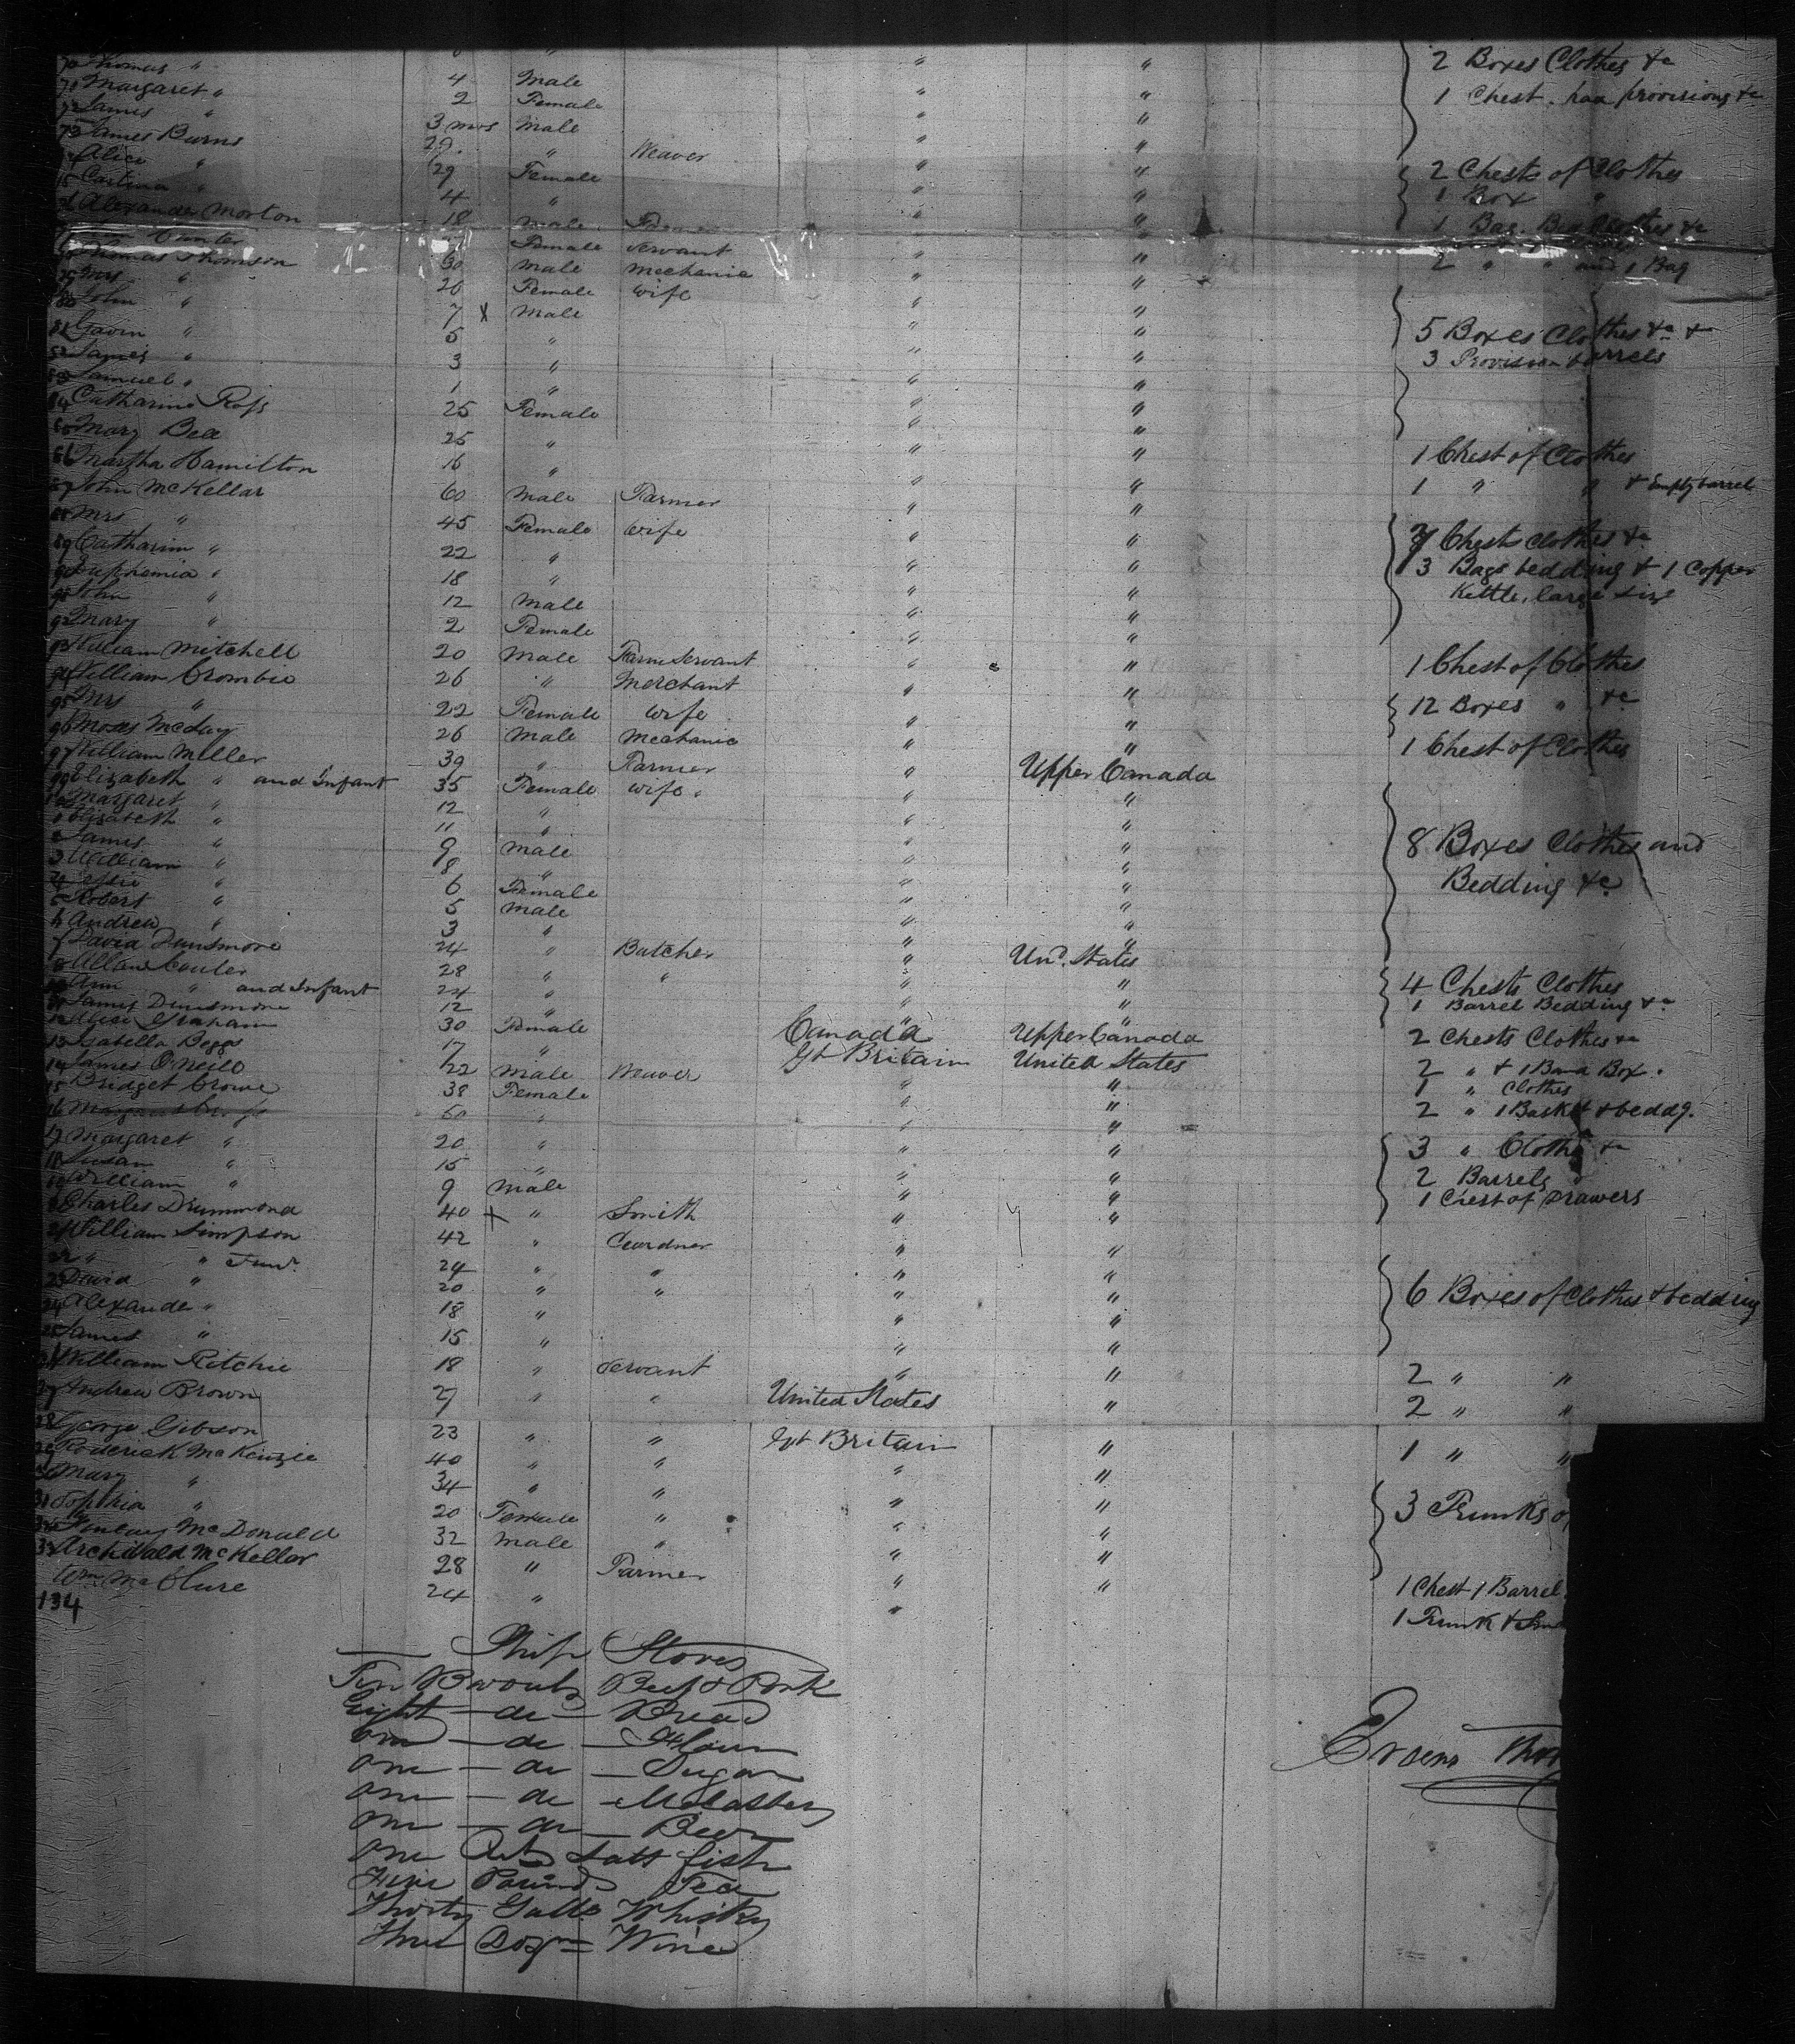 70 Thomas " 4 Male " " 2 Boxes Clothes &c
71 Margaret " 2 Female " " 1 Chest, provisions &c
72 James " 3 mos Male " "
73 James Burns 29 " Weaver " "
Alice " 29 Female " " 2 Chests of Clothes
75 " 4 " " " 1 Box "
Alexander Morton 18 Male " " 1 Bag, Clothes &c
Hunter Female Servant " " 2 " " and 1 Bag
Thomas Thomson 30 Male Mechanic " "
79 Mrs " 26 Female Wife " "
80 John " 7 X Male " "
81 Gavin " 5 " " " 5 Boxes Clothes &c &
82 James " 3 " " " 3 Provision barrels
83 Samuel " 1 " " "
84 Catharine Ross 25 Female " "
85 Mary Bell 25 " " " 1 Chest of Clothes
86 Martha Hamilton 16 " " " 1 " " & Empty barrel
87 John McKellar 60 Male Farmer " "
88 Mrs " 45 Female Wife " " Chests clothes &c
89 Catharine " 22 " " " 3 Bags bedding & 1 Copper
90 Euphemia " 18 " " " Kettle, large size
91 John " 12 Male " "
92 Mary " 2 Female " "
93 William Mitchell 20 Male Farm Servant " " 1 Chest of Clothes
94 William Crombie 26 " Merchant " "
95 Mrs " 22 Female Wife " " 12 Boxes " &c
96 Moses 26 Male Mechanic " " 1 Chest of Clothes
97 William Miller 39 " Farmer " Upper Canada
99 Elizabeth " and Infant 35 Female Wife " "
100 Margaret " 12 " " "
1 Elizabeth " 11 " " "
2 James " 9 Male " " 8 Boxes Clothes and
3 William " 8 " " " Bedding &c
4 " 6 Female " "
5 Robert " 5 Male " "
6 Andrew " 3 " " "
7 David Dunsmore 24 " Butcher " Und. States
8 Allan Couter 28 " " " " 4 Chests Clothes
Ann " and Infant 24 " " " 1 Barrel Bedding &c
James Dunsmore 12 " " "
12 Alice Graham 30 Female Canada Upper Canada 2 Chests Clothes &c
13 Isabella Beggs 17 " Gt Britain United States 2 " & 1 Band Box
14 James O'Neill 22 Male Weaver " " 1 " Clothes
15 Bridget Crowe 38 Female " " 2 " 1 Basket & beddg.
16 Margaret 50 " " "
17 Margaret " 20 " " " 3 " Clothes &c
18 Susan " 15 " " " 2 Barrels
William " 9 Male " " 1 Chest of Drawers
20 Charles Drummond 40 + " Smith " "
21 William Simpson 42 " Gardner " "
22 " " Junr. 24 " " " "
23 David " 20 " " " " 6 Boxes of Clothes & bedding
24 Alexander " 18 " " "
25 James " 15 " " "
26 William Ritchie 18 " Servant " " 2 " "
27 Andrew Brown 27 " " United States " 2 " "
28 George Gibson 23 " " Gt Britain " 1 " "
29 Roderick McKenzie 40 " " " "
30 Mary " 34 " " " " 3 Trunks of
31 Sophia " 20 Female " " "
32 Finlay McDonald 32 Male " " "
33 Archibald McKellar 28 " Farmer " " 1 Chest 1 Barrel
134 Wm McClure 24 " " 1 Trunk &
Ship Stores
Ten Barrels Beef & Pork
Eight - do - Bread
One - do - Flour
One - do - Sugar
One - do - Molasses
One - do - Beer
One Salt fish
Five Pounds Tea
Thirty Galls Whisky
Three Dozn Wine